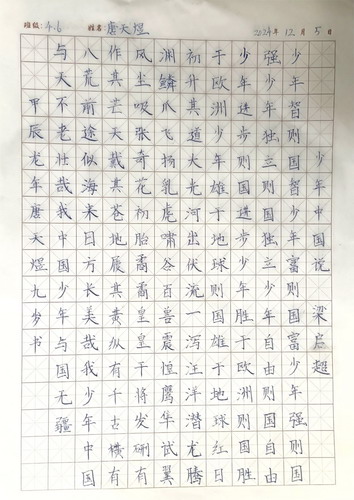 班级: 4.6 姓名: 唐天煜 2024年12月5日
少年中国说 梁启超
少年智则国智少年富则国富少年强则国
强少年独立则国独立少年自由则国自由
少年进步则国进步少年胜于欧洲则国胜
于欧洲少年雄于地球则国雄于地球红日
初升其道大光河出伏流一泻汪洋潜龙腾
渊鳞爪飞扬乳虎啸谷百兽震惶鹰隼试翼
风尘吸张奇花初胎矞矞皇皇干将发硎有
作其芒天戴其苍地履其黄纵有千古横有
八荒前途似海来日方长美哉我少年中国
与天不老壮哉我中国少年与国无疆
甲辰龙年唐天煜九岁书